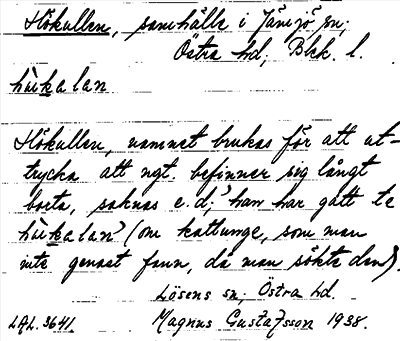 Hökullen, samhälle i Jämjö sn,
Östra hd, Blek. l.
hùkalan
Hökullen, namnet brukas för att ut-
trycka att ngt. befinner sig långt
borta, saknas e.d; 'han har gått te
hùkalan' (om kattunge, som man
inte genast fann, då man sökte den).
Lösens sn, Östra hd.
LAL. 3641. Magnus Gustafsson 1938.